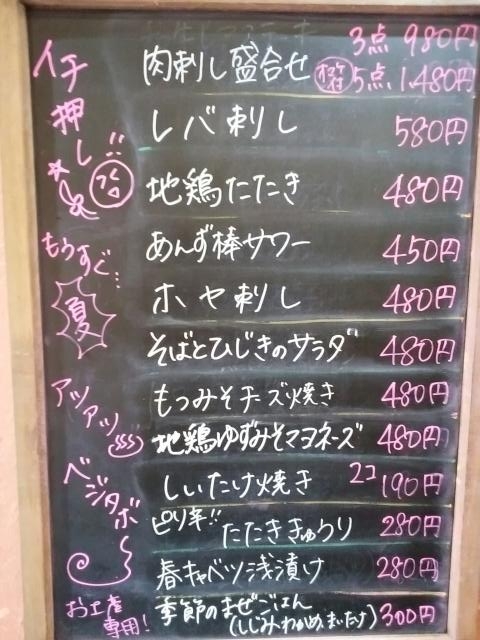 イチ押し!!
肉刺し盛合せ 3点 980円
5点 1,480円
レバ刺し 580円
地鶏たたき 480円
もうすぐ…夏
あんず棒サワー 450円
ホヤ刺し 480円
そばとひじきのサラダ 480円
アツアツ
もつみそチーズ焼き 480円
地鶏ゆずみそマヨネーズ 480円
ベジタボ
しいたけ焼き 2コ 190円
ピリ辛!! たたききゅうり 280円
春キャベツ浅漬け 280円
お土産専用!
季節のまぜごはん 300円
(しじみ・わかめ、まいたけ)